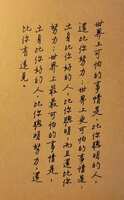 世界上可怕的事情是,比你聰明的人,
還比你努力;世界上更可怕的事情是,
出身比你好的人,比你聰明,而且還比你
努力;世界上最可怕的事情是,
出身比你好的人,比你聰明努力還
比你有遠見。